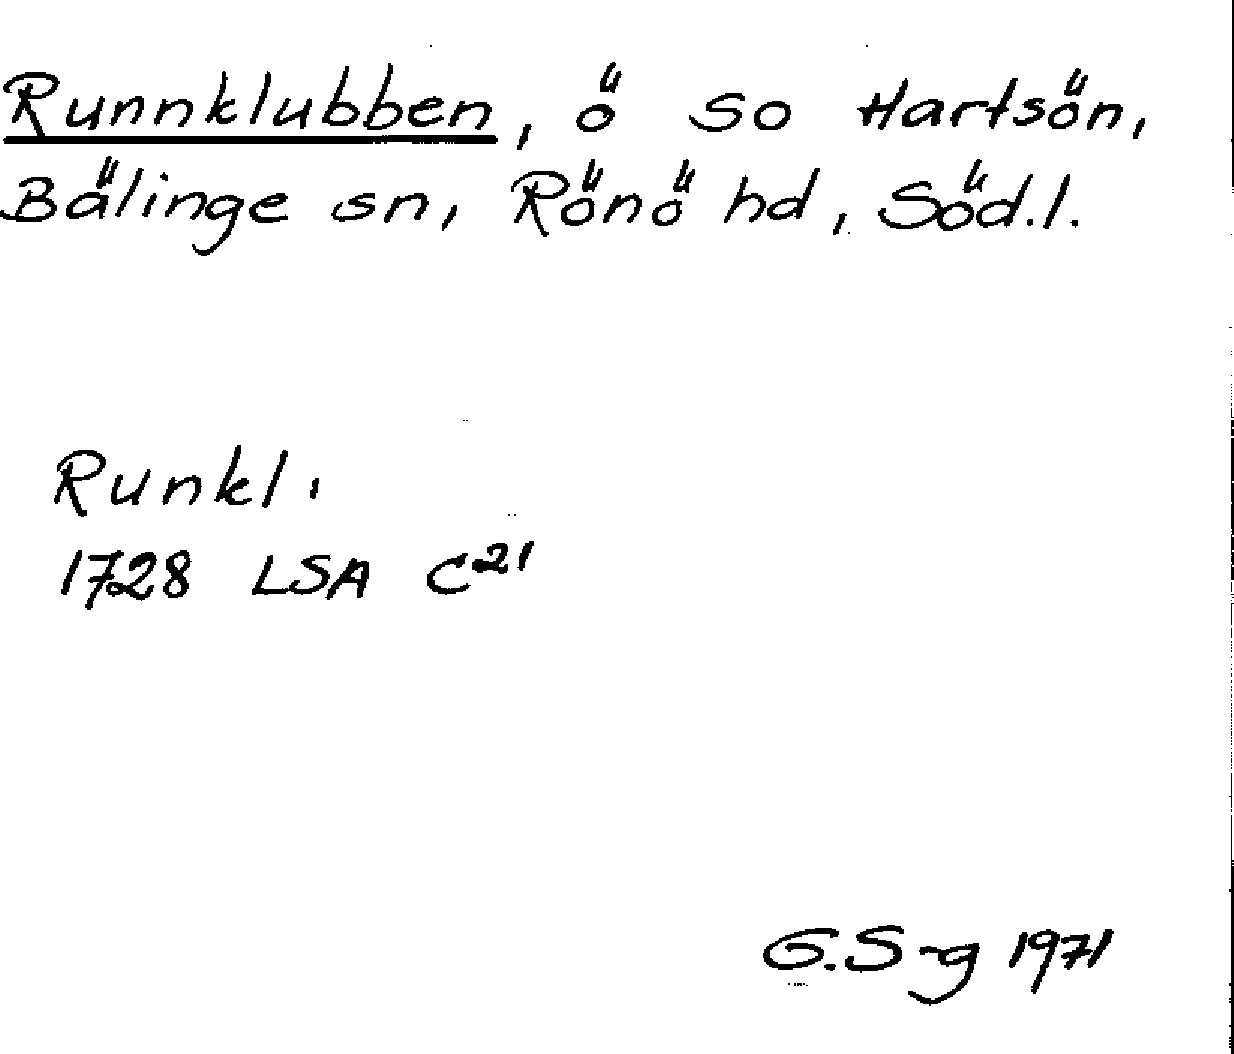 Runnklubben, ö so Hartsön,
Bälinge sn, Rönö hd, Söd.l.
Runkl.
1728 LSA C21
G.S-g 1971